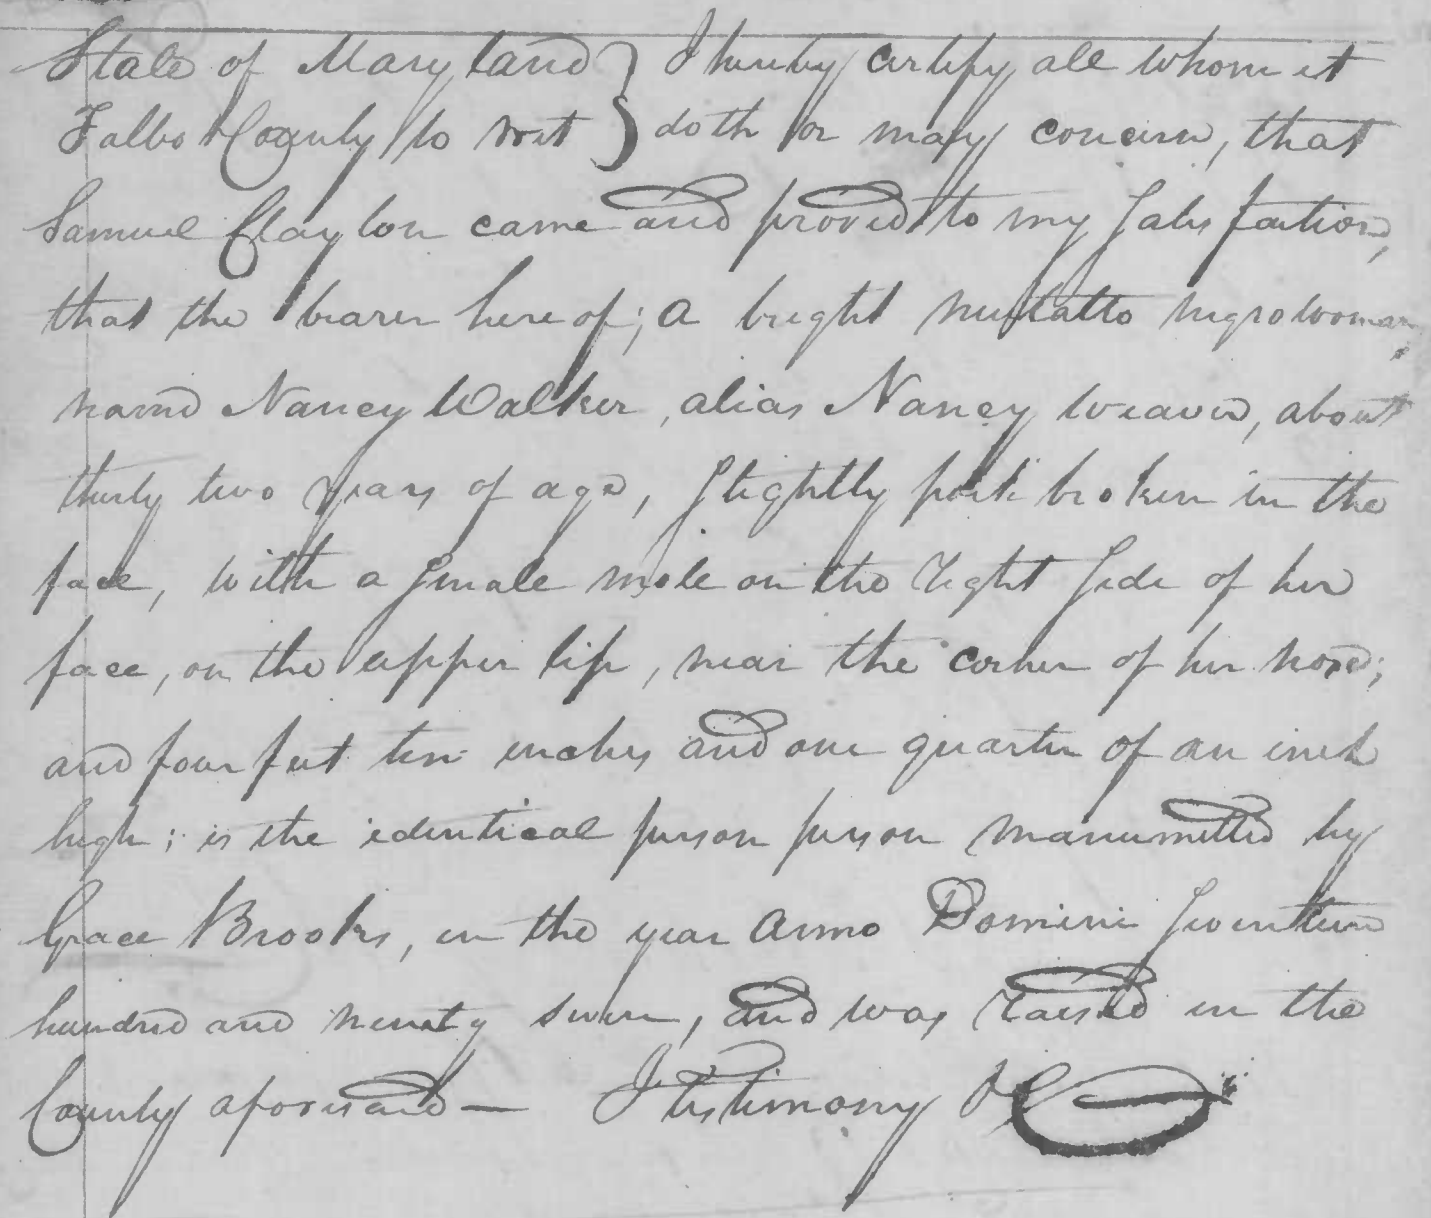 State of Maryland } I hereby certify all whom it
Talbot County to wit } doth or may concern, that
Samuel Clayton came and proved to my Satisfaction,
that the bearer hereof; a bright mullatto negro woman,
named Nancy Walker, alias Nancy Weaver, about
thirty two years of age, Slightly pock broken in the
face, with a Small mole on the right Side of her
face, on the upper lip, near the corner of her nose;
and four feet ten inches and one quarter of an inch
high; is the identical person person manumitted by
Grace Brooks, in the year Anno Domini Seventeen
hundred and ninety seven, and was raised in the
County aforesaid — I testimony &C